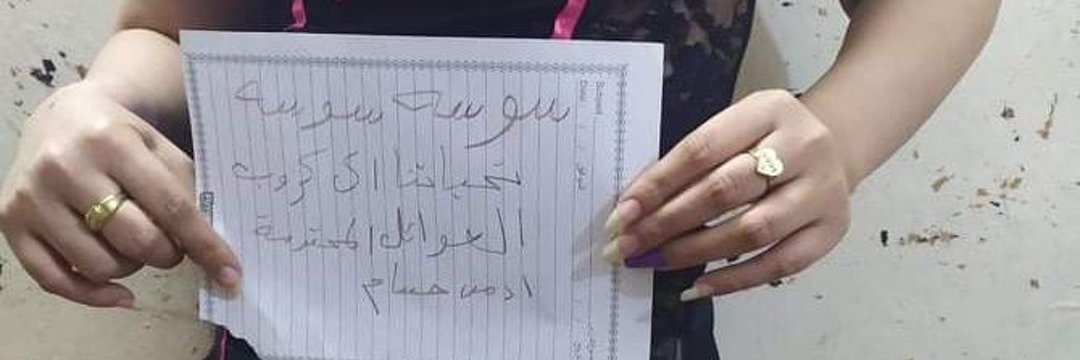 سوسه سوسه
تحياتنا الى كروب
العوائل المحترمة
ادمن حسام